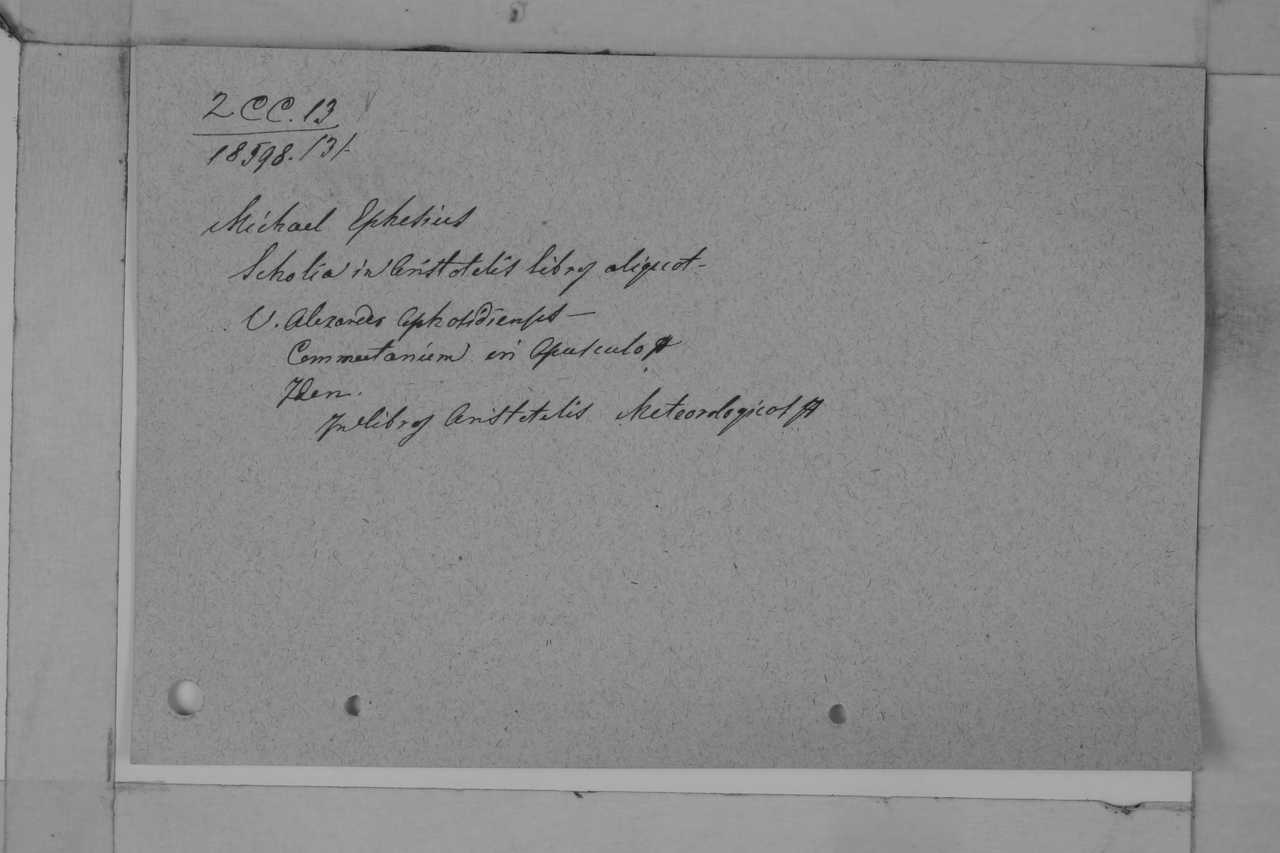 2 CC. 13
18598. /3/.
Michael Ephesius
Scholia in Aristotelis libros aliquot-
V. Alexander Aphrodiensis —
Commentarium in Opusculo
Idem.
In libros Aristotelis Meteorologicos